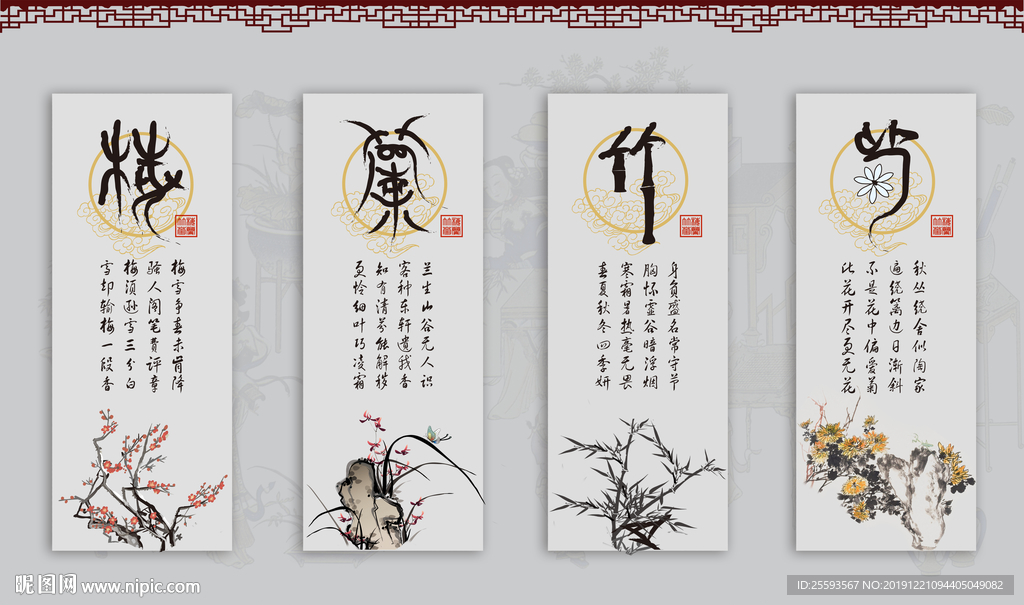 梅
梅雪争春未肯降
骚人阁笔费评章
梅须逊雪三分白
雪却输梅一段香
蘭
兰生山谷无人识
客种东轩遗我香
知有清芬能解秽
更怜细叶巧凌霜
竹
身负盛名常守节
胸怀虚谷暗浮烟
寒霜暑热毫无畏
春夏秋冬四季妍
秋丛绕舍似陶家
遍绕篱边日渐斜
不是花中偏爱菊
此花开尽更无花
昵图网 www.nipic.com
ID:25593567 NO:20191221094405049082